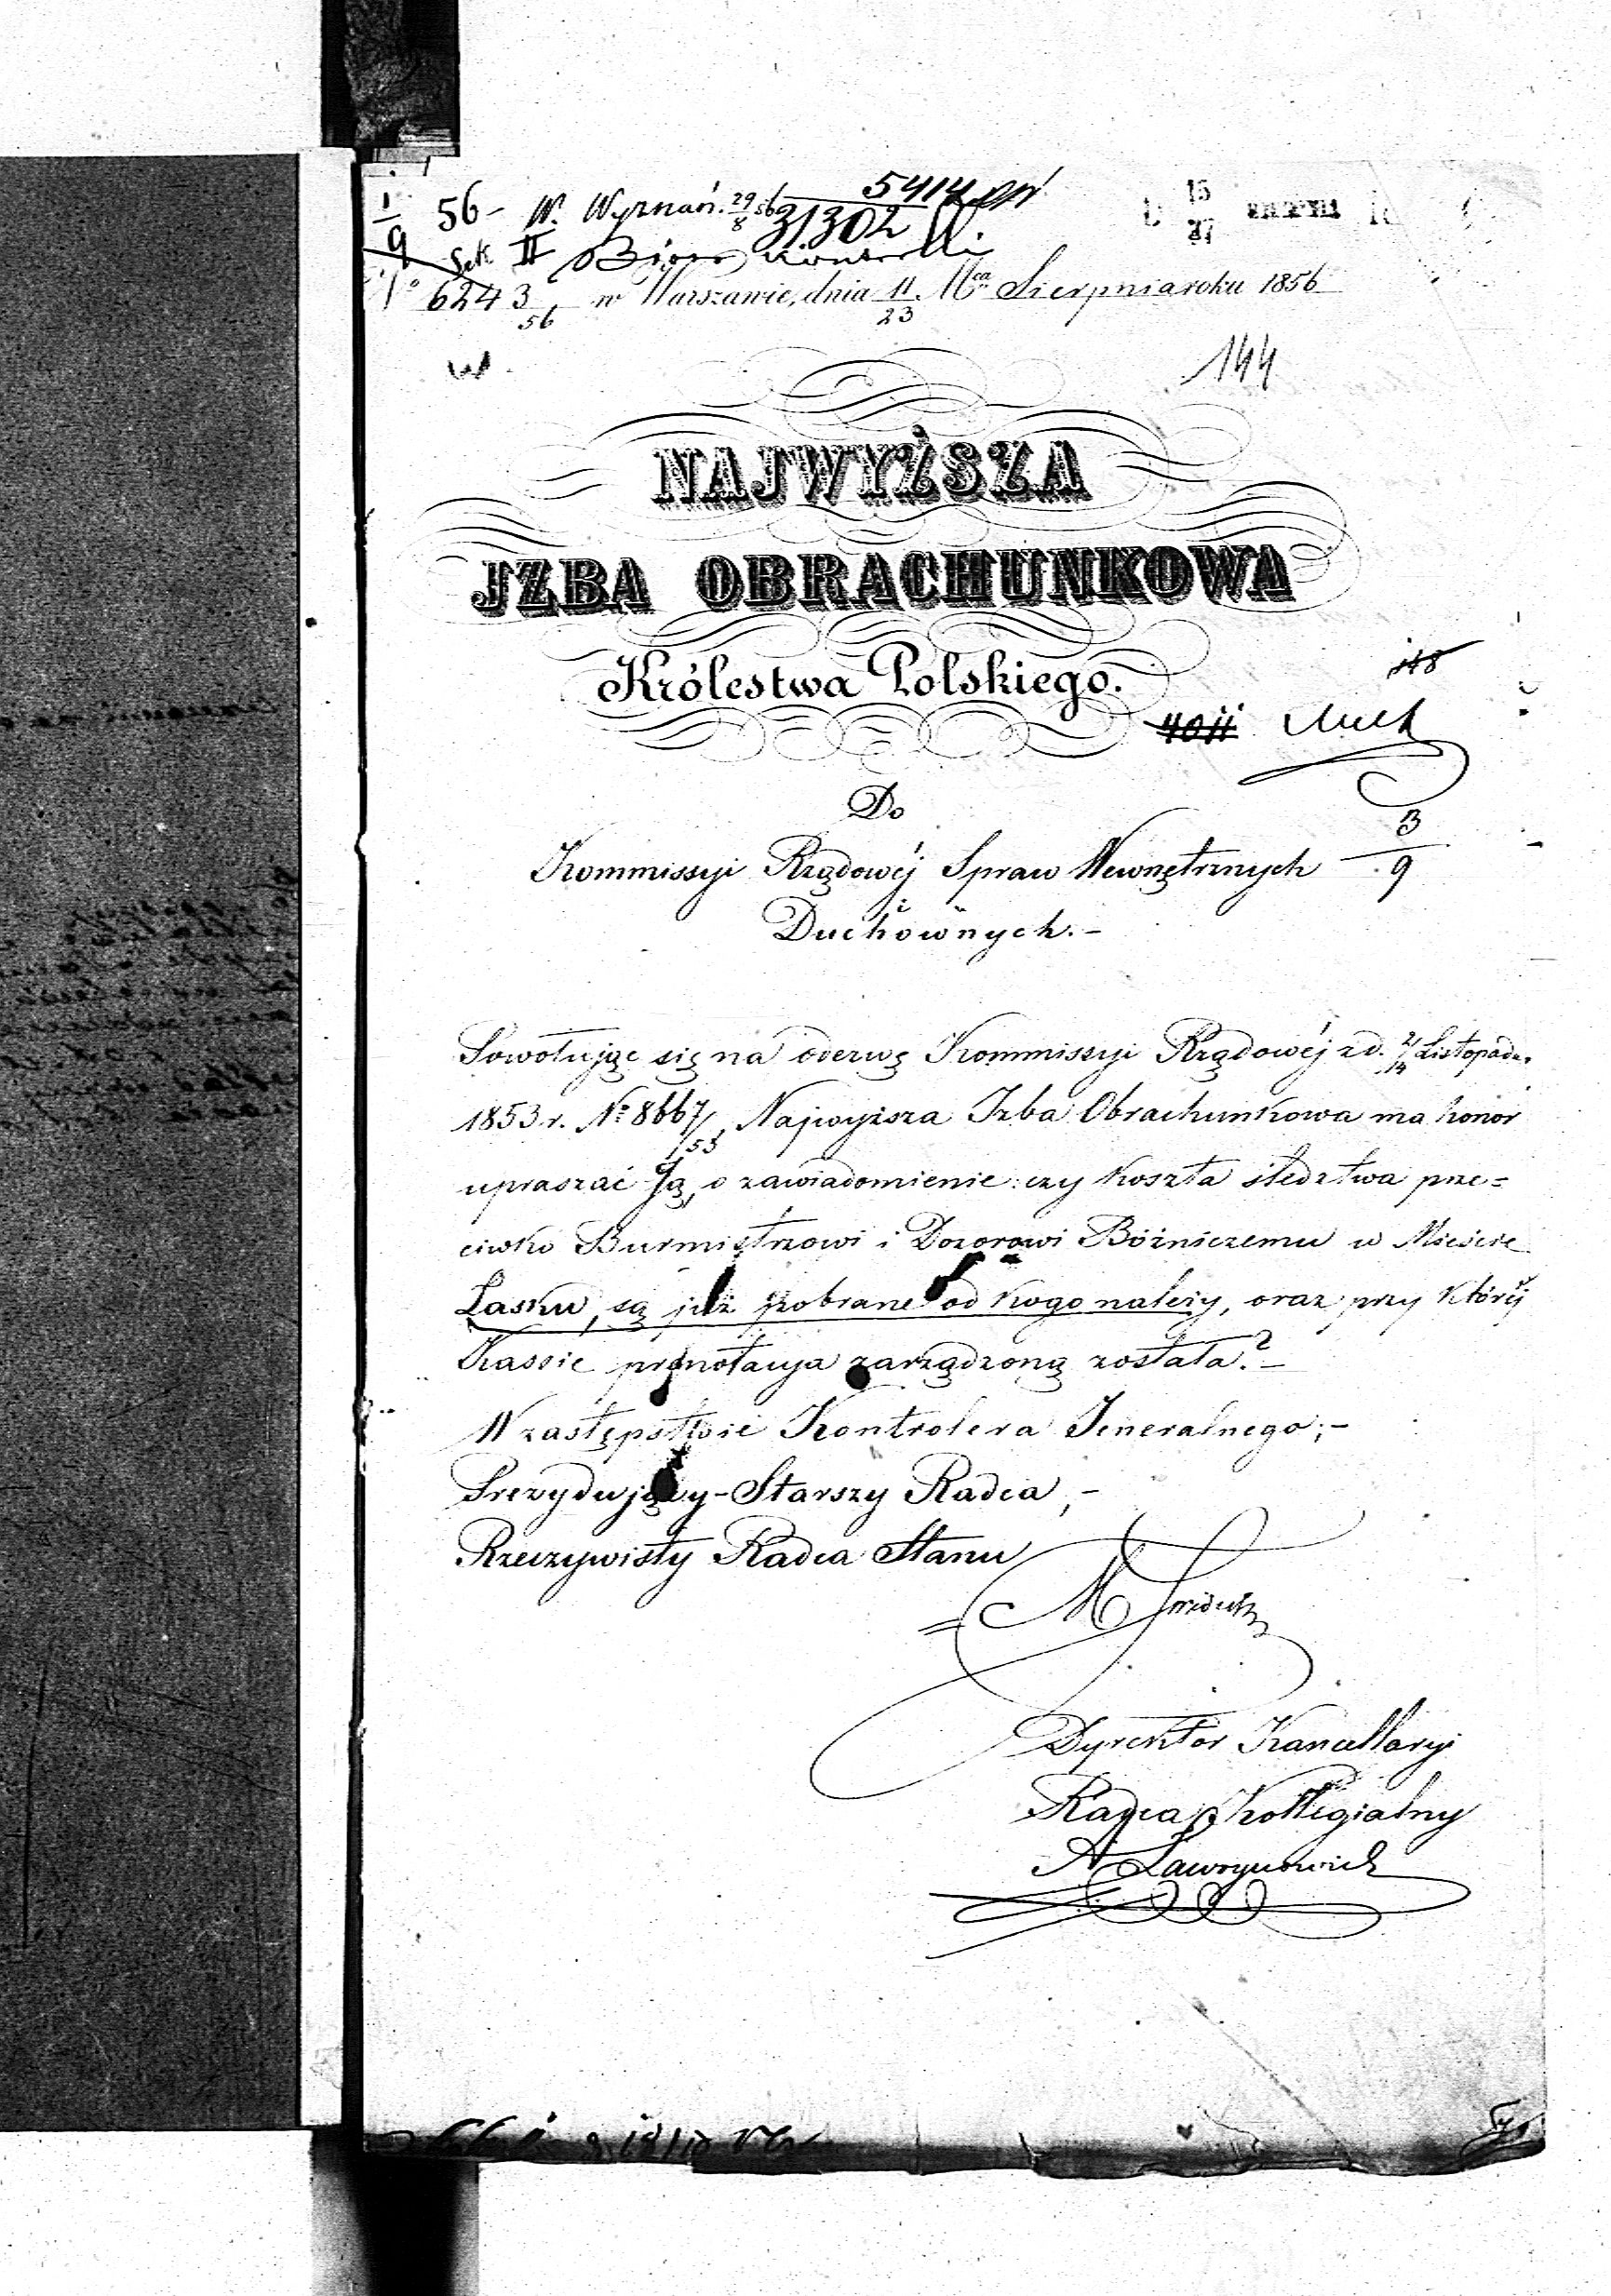 1/9 56 - W. Wyznań. 29/8 56 5414
31302
Sek. II Bióro Kontrolli
No 6243/56, w Warszawie, dnia 11/23 Mca Sierpnia roku 1856
144
NAJWYŻSZA
JZBA OBRACHUNKOWA
Królestwa Polskiego.
118
3/9
Do
Kommissyi Rządowéj Spraw Wewnętrznych
i
Duchownych. -
Powołując się na odezwę Kommissyi Rządowéj z d. 2/14 Listopada.
1853 r. No 8667/53, Najwyższa Izba Obrachunkowa ma honor
upraszać Ją, o zawiadomienie: czy koszta śledztwa prze=
ciwko Burmistrzowi i Dozorowi Bóżniczemu w Mieście
Łasku, są już pobrane od kogo należy, oraz przy któréj
Kassie prenotacya zarządzoną została? -
W zastępstwie Kontrolera Jeneralnego, -
Prezydujący - Starszy Radca, -
Rzeczywisty Radca Stanu
Dyrektor Kancellaryi
Radca Kollegialny
A Ławrynowicz